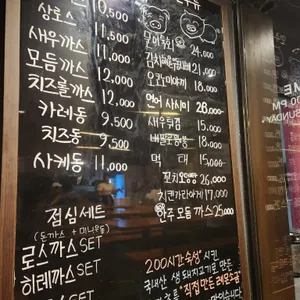 10,500
상로스 11,500
새우까스 11,000
모듬까스 12,000
치즈롤까스 12,000
카레동 9,500
치즈동 9,500
사케동 11,000
점심세트
(돈까스 + 미니우동)
로스까스 SET
히레까스 SET
24,000
21,000
오코노미야끼 18,000
연어 사시미 28,000
새우튀김 15,000
18,000
먹태 15,000
꼬치오뎅탕 25,000
치킨가라아게 17,000
안주 모듬 까스 25,000
"200시간숙성" 시킨
국내산 생 돼지고기로 만든
"직접 만든